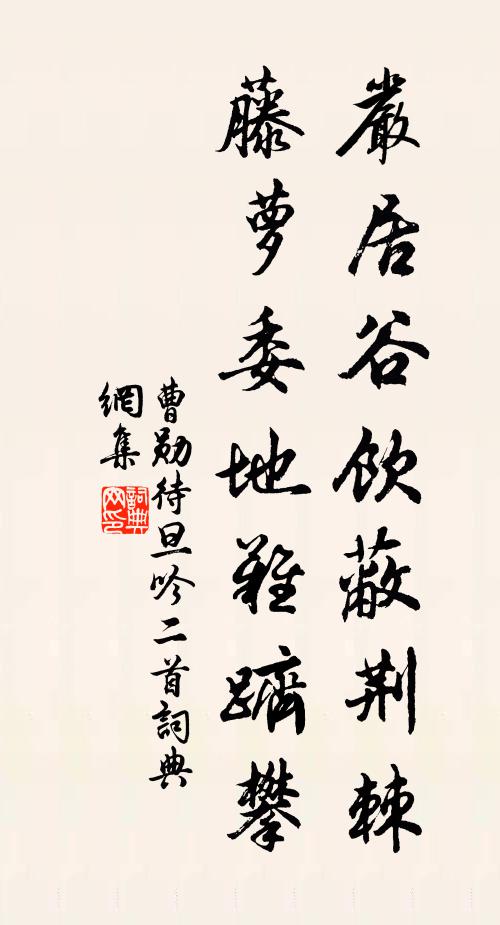 嚴居谷飲蔽荆棘
藤蘿委地難躋攀
曹勛待旦吟二首詞典
網集
詞典网印